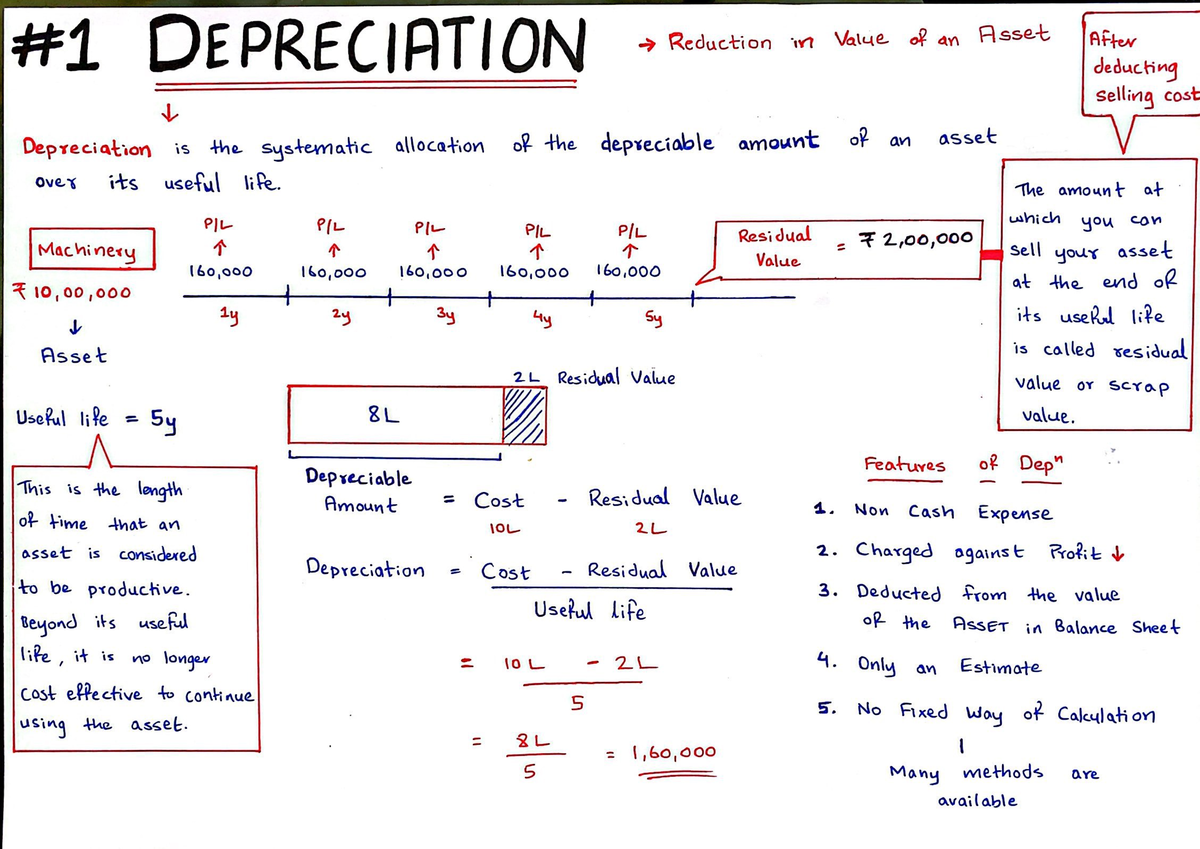 #1 DEPRECIATION → Reduction in Value of an Asset
After
deducting
selling cost
↓
Depreciation is the systematic allocation of the depreciable amount of an asset
over its useful life.
The amount at
which you can
sell your asset
at the end of
its useful life
is called residual
value or scrap
value.
Machinery
₹ 10,00,000
↓
Asset
P/L P/L P/L P/L P/L
↑ ↑ ↑ ↑ ↑
160,000 160,000 160,000 160,000 160,000
1y 2y 3y 4y 5y
Residual
Value = ₹ 2,00,000
Useful life = 5y
This is the length
of time that an
asset is considered
to be productive.
Beyond its useful
life, it is no longer
cost effective to continue
using the asset.
2L Residual Value
8L
Depreciable
Amount = Cost - Residual Value
10L 2L
Depreciation = Cost - Residual Value
Useful life
= 10L - 2L
5
= 8L = 1,60,000
5
Features of Depⁿ
1. Non Cash Expense
2. Charged against Profit ↓
3. Deducted from the value
of the ASSET in Balance Sheet
4. Only an Estimate
5. No Fixed Way of Calculation
Many methods are
available